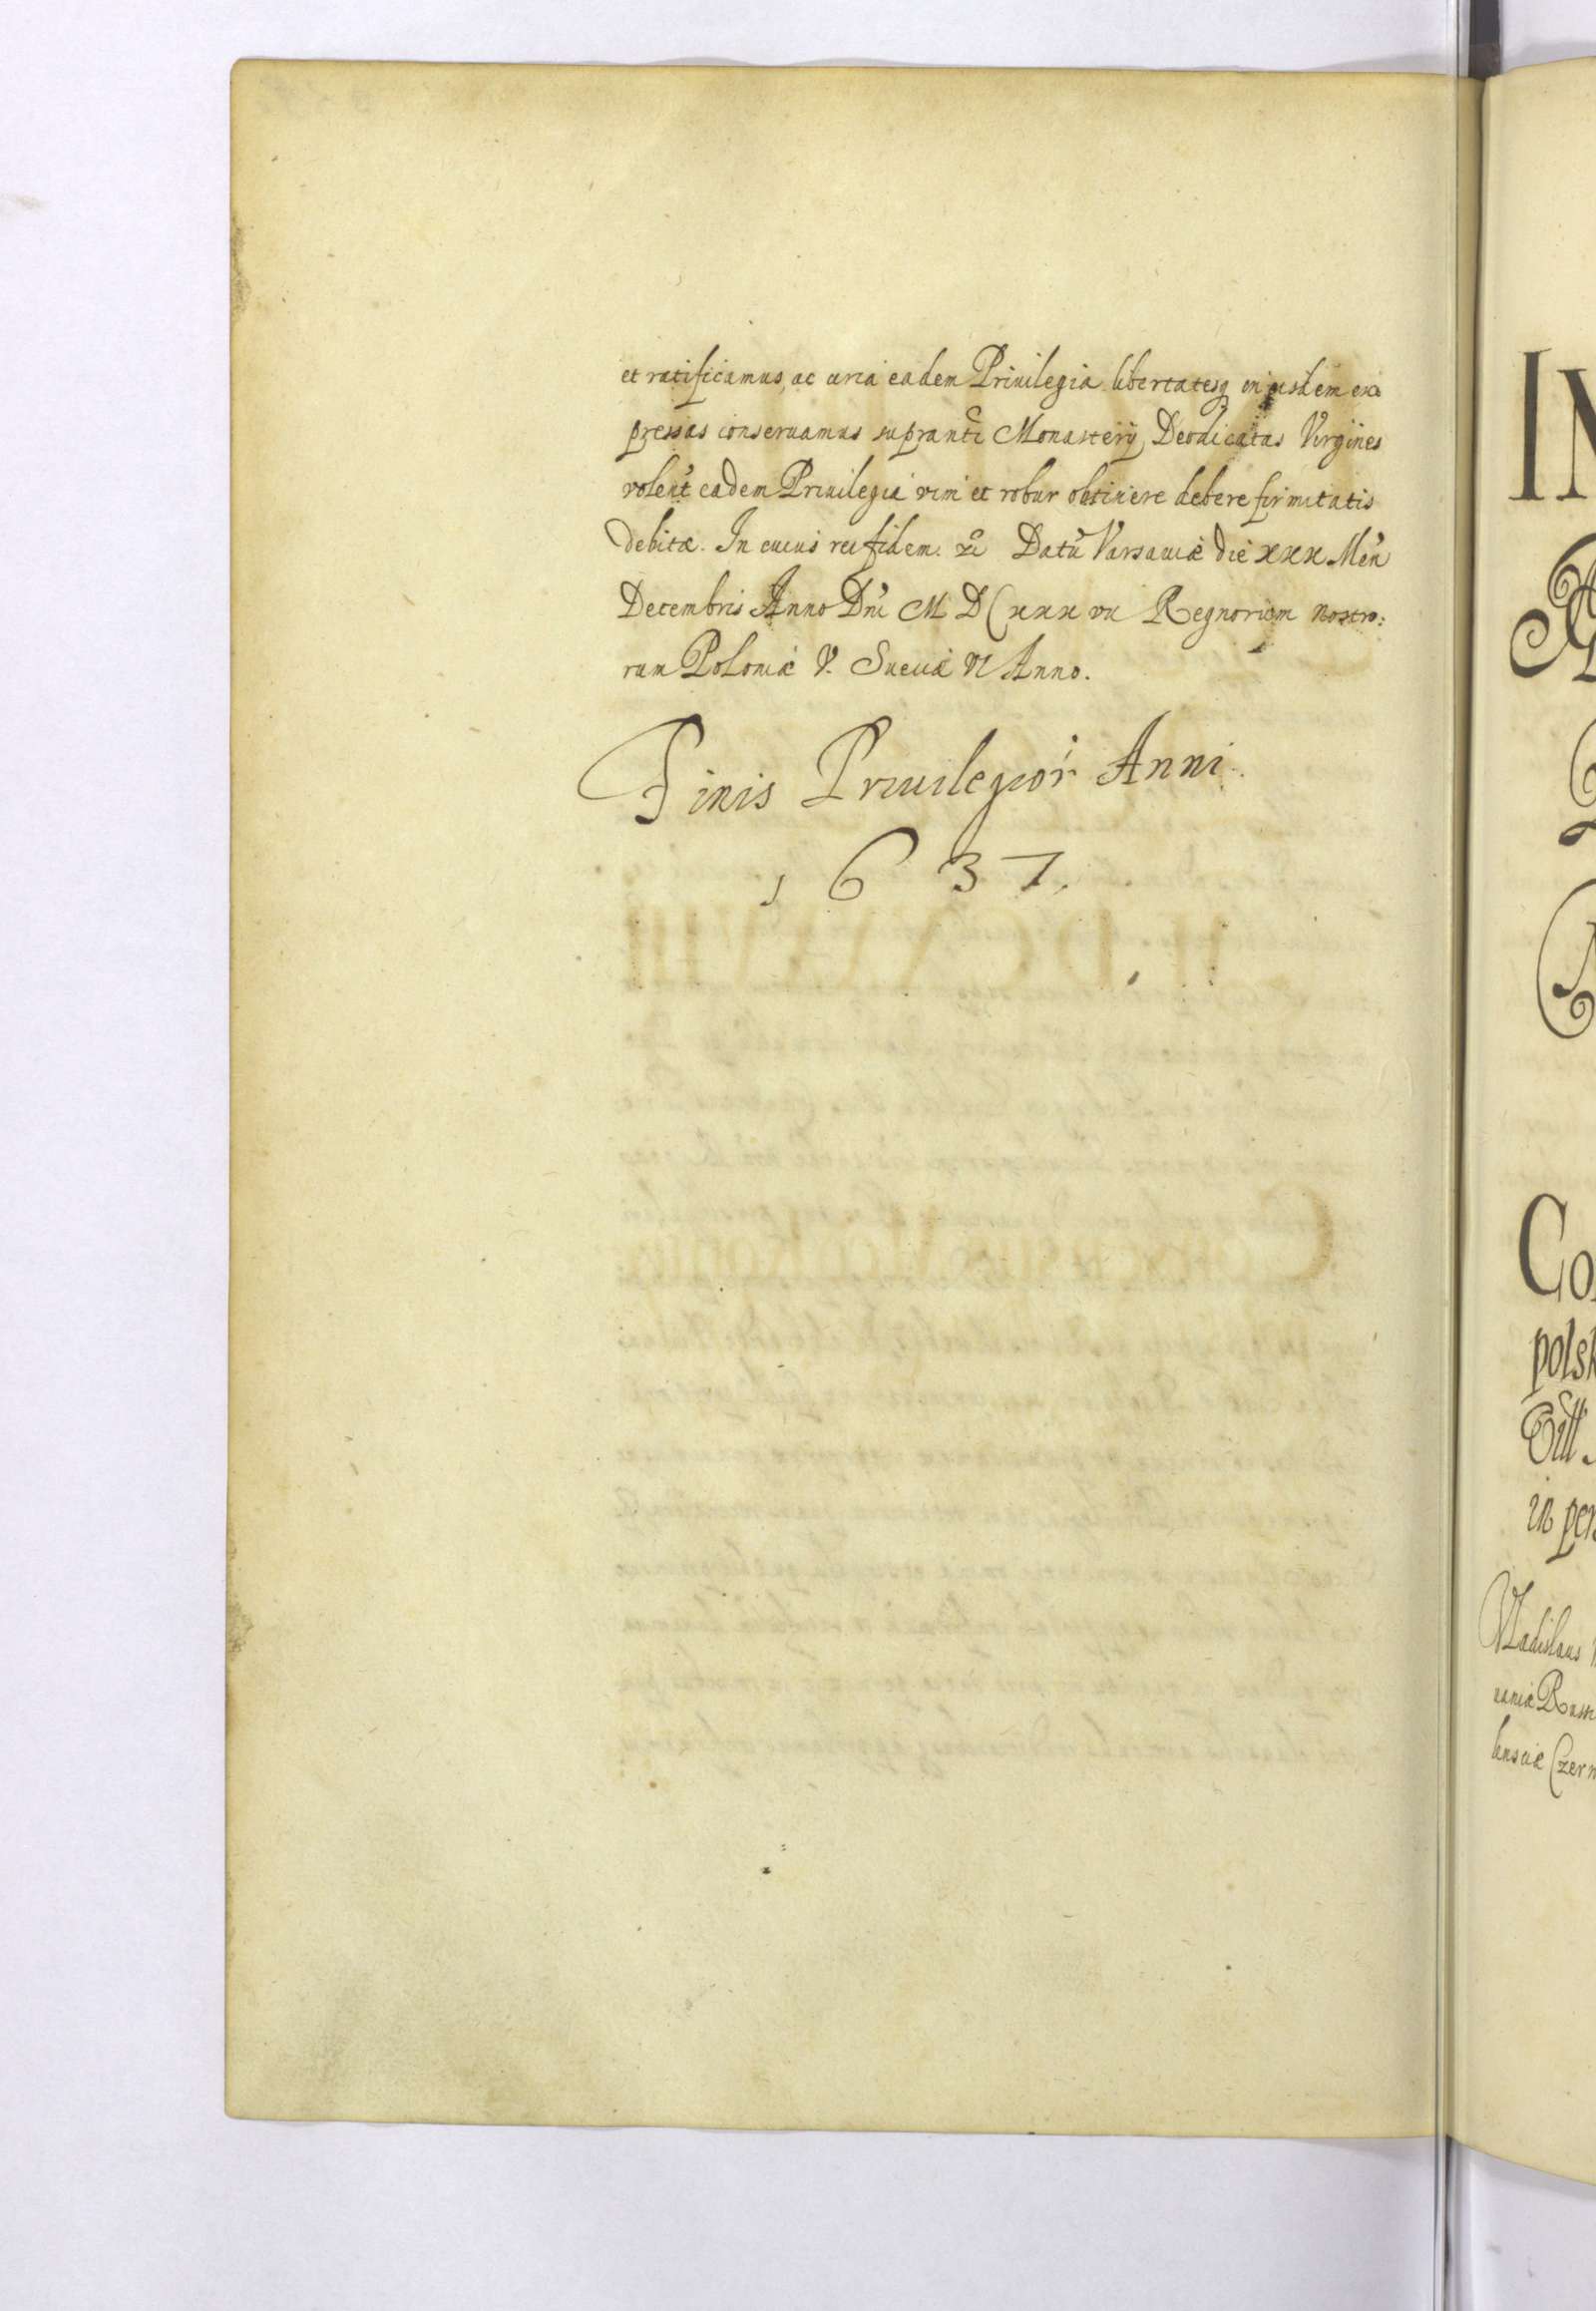 et ratificamus, ac circa eadem Priuilegia libertatesq in eisdem ex
pressas conseruamus supranti Monasterij Deodicatas Virgines
volent eadem Priuilegia vim et robur obtinere debere firmitatis
debitæ. In cuius rei fidem. Datu Varsauiæ die xxx Men
Decembris Anno Dni M D C xxx vii Regnorum nostro:
rum Poloniæ V. Sueciæ VI Anno.
Finis Priuilegior Anni
1637.
IN
Co
polsk
in per
Vladislaus
uaniæ Russi
lensciæ Czern